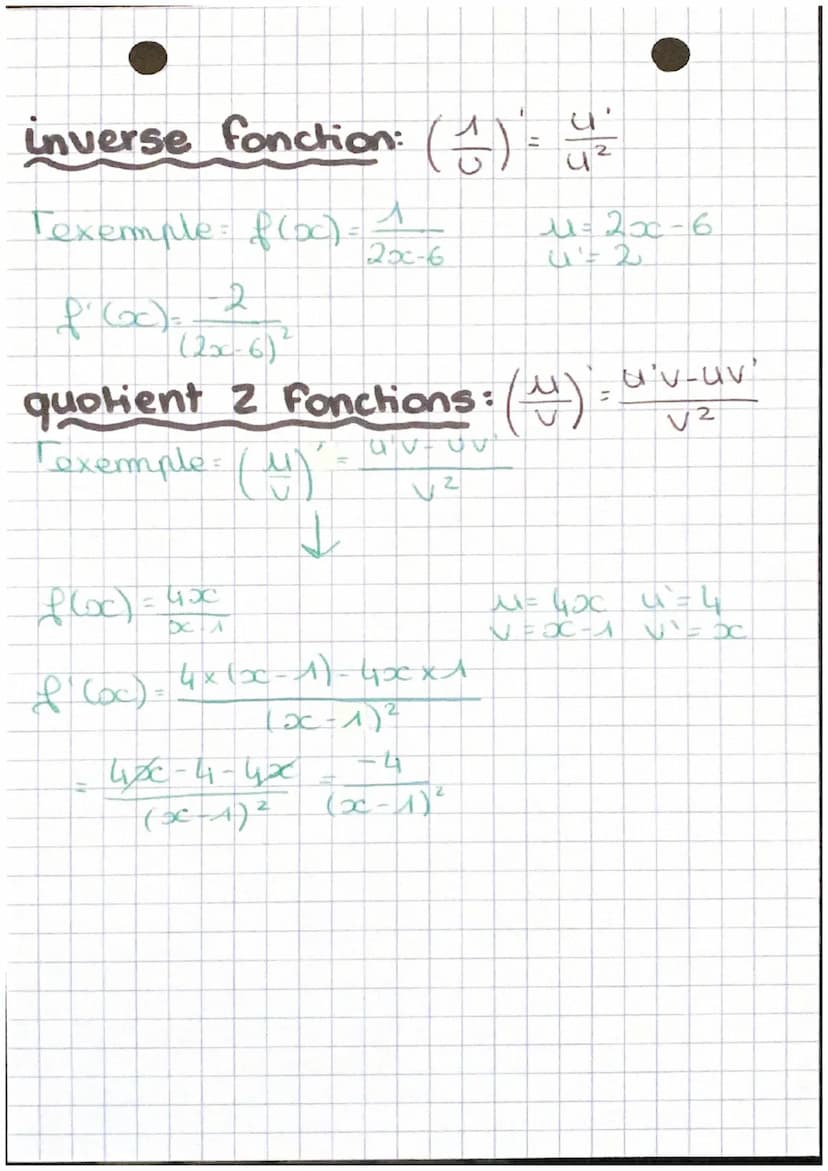 inverse fonction: (1/u)' = u'/u²
exemple: f(x) = 1/(2x-6)    u = 2x-6
u' = 2
f'(x) = -2/(2x-6)²
quotient 2 fonctions: (u/v)' = (u'v-uv')/v²
exemple: (u/v)' = (u'v-uv')/v²
↓
f(x) = 4x/(x-1)    u = 4x  u' = 4
v = x-1  v' = x
f'(x) = (4×(x-1)-4x×1)/(x-1)²
= (4x-4-4x)/(x-1)² = -4/(x-1)²